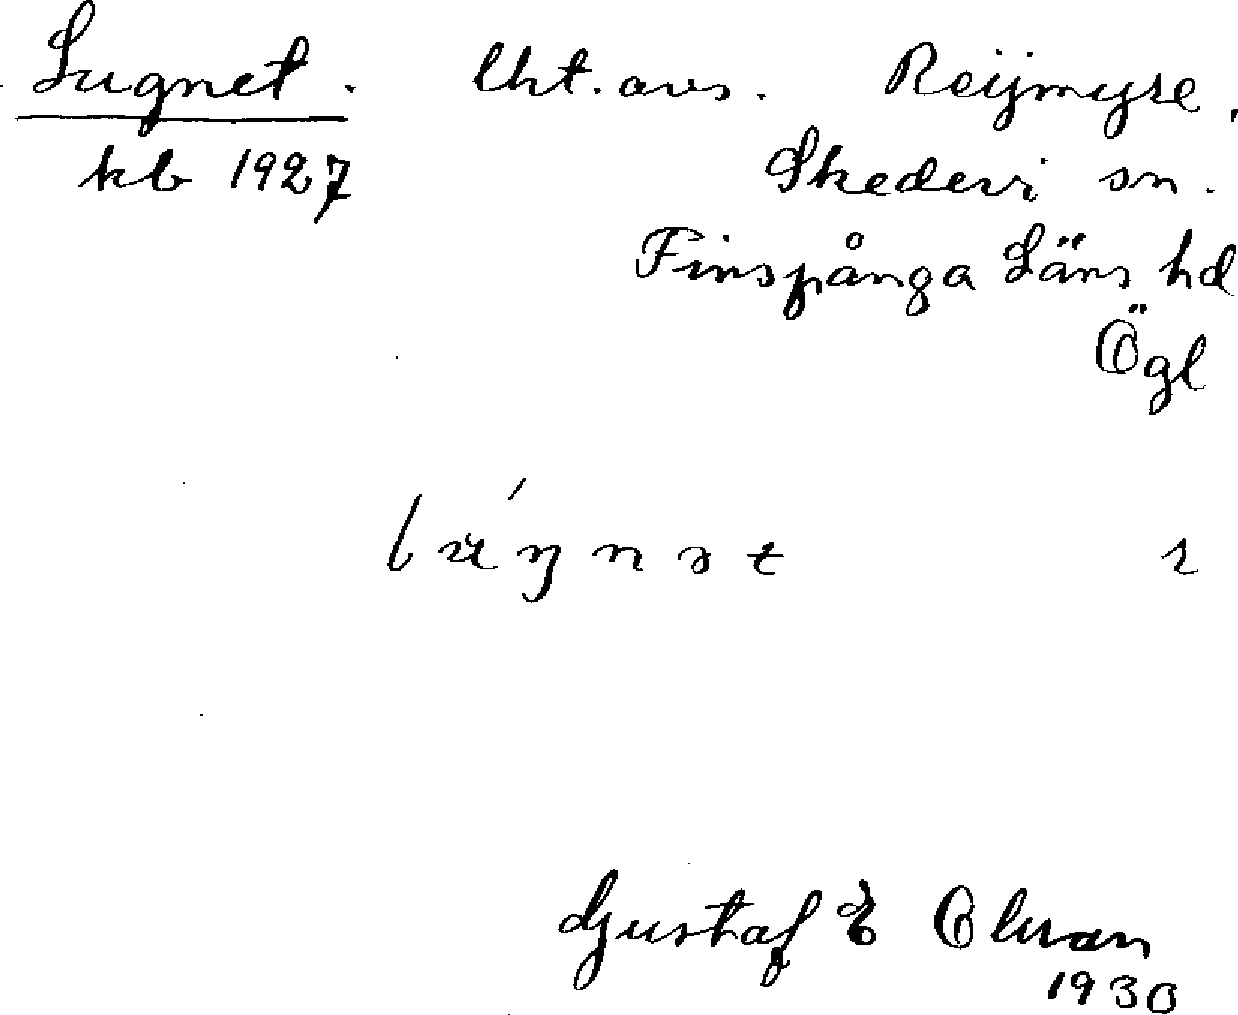 Lugnet. lht. avs. Reijmyre,
kb 1927 Skedevi sn.
Finspånga Läns hd
Ögl
Gustaf E Olson
1930